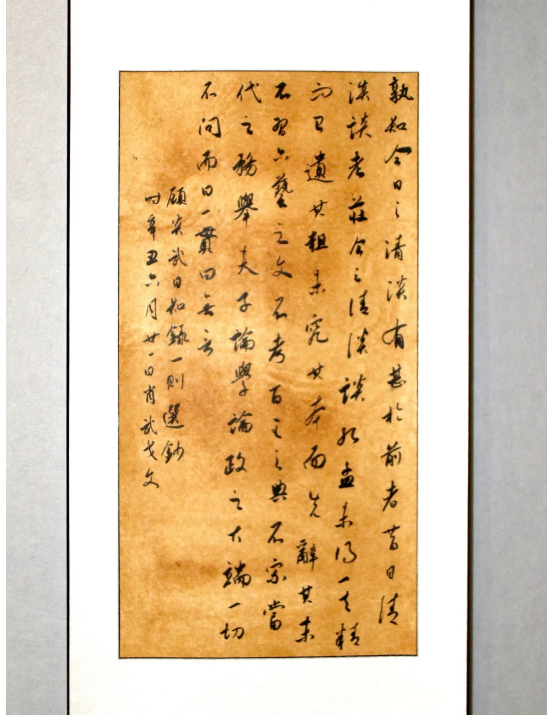 孰知今日之清談有甚於前者昔日清
談談老莊今之清談談孔孟未得其精
而已遺其粗未究其本而先辭其末
不習六藝之文不考百王之典不綜當
代之務舉夫子論學論政之大端一切
不問而曰一貫曰無言
顧炎武日知錄一則選鈔
時辛丑六月廿一日肖武戈文